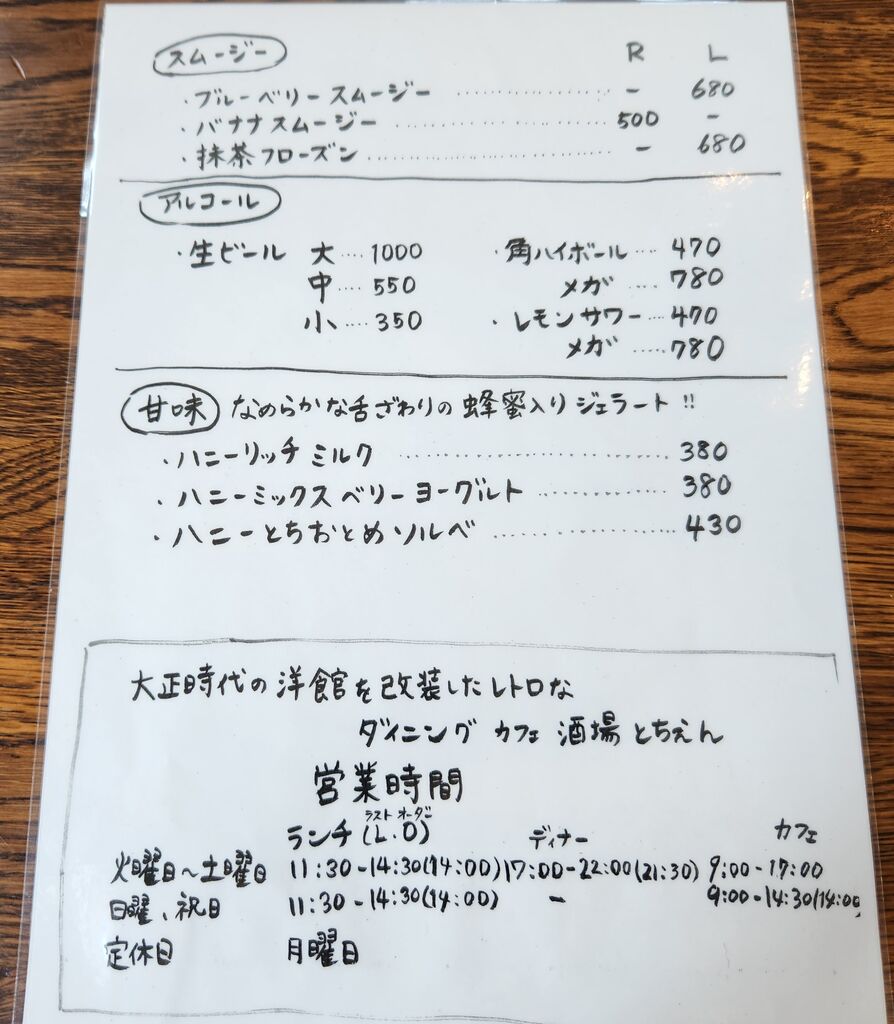 スムージー R L
・ブルーベリースムージー ………… - 680
・バナナスムージー ………… 500 -
・抹茶フローズン ………… - 680
アルコール
・生ビール 大 …… 1000 ・角ハイボール …… 470
中 …… 550 メガ …… 780
小 …… 350 ・レモンサワー …… 470
メガ …… 780
甘味 なめらかな舌ざわりの蜂蜜入りジェラート!!
・ハニーリッチミルク ………… 380
・ハニーミックスベリーヨーグルト ………… 380
・ハニーとちおとめソルベ ………… 430
大正時代の洋館を改装したレトロな
ダイニング カフェ 酒場 とちえん
営業時間
ラスト オーダー
ランチ (L.O) ディナー カフェ
火曜日~土曜日 11:30-14:30(14:00) 17:00-22:00(21:30) 9:00-17:00
日曜、祝日 11:30-14:30(14:00) - 9:00-14:30(14:00)
定休日 月曜日